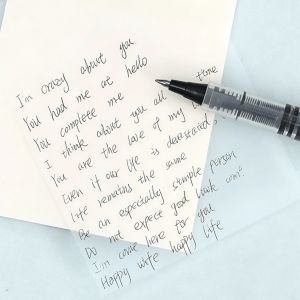 I'm crazy about you
You had me at hello
You complete me
I think about you all time
You are the love of my
Even if our life is
Life remains the same
Be an especially simple person
Do not expect good luck
I'm come here to you
Happy wife happy life